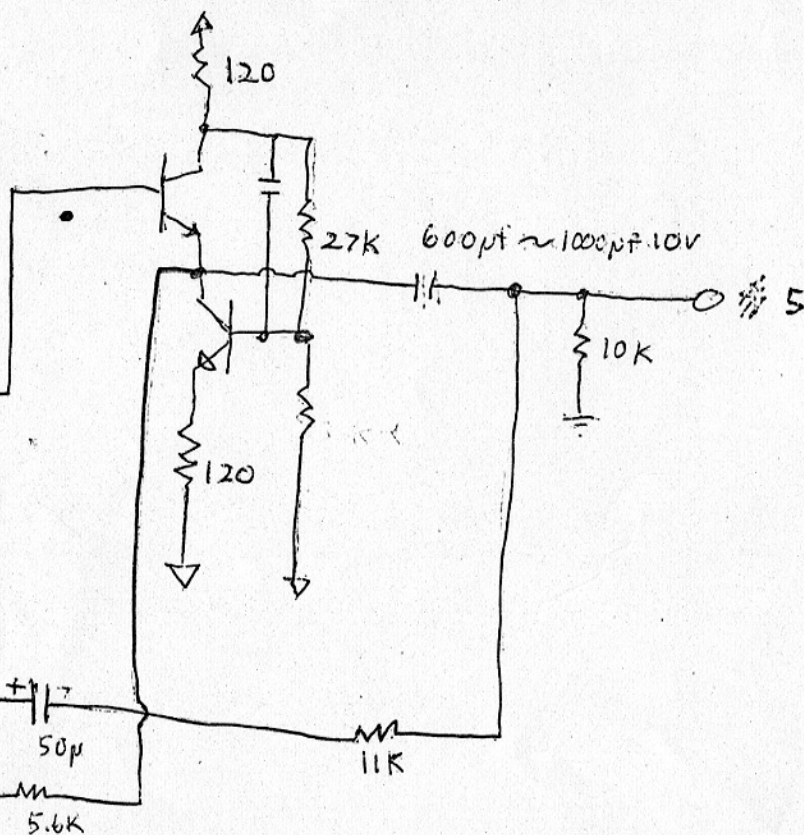 120
27K
600μf ~ 1000μf 10V
5
10K
120
+
50μ
11K
5.6K